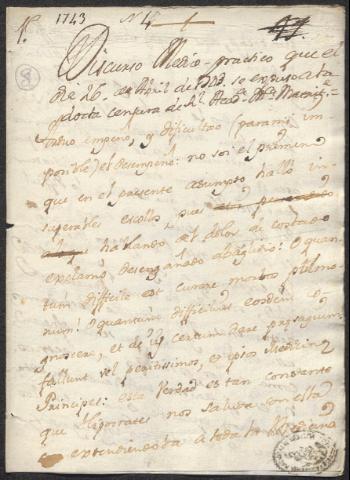 1743 N. 4
Discurso Medico-practico que el
dia 26 de Abril de 1743 se expuso a la
docta censura de la Rl. Acad. Mca. Matrite
arduo empeño, y dificultoso (para mi im
posible) el desempeño: no soi el primero
que en el presente assumpto hallo in
superables escollos, pues
hablando del dolor de costado
exclamó desengañado abaglivio: O quan
tum difficile est curare morbos pulmo
num! O quantum difficilius eosdem co
gnoscere, et de iis certum dare praesagium!
fallunt vel peritissimos, et ipsos Medicinae
Principes: esta verdad es tan constante
que Hipocrates nos saluda con ella
extendiendola a toda la Medicina